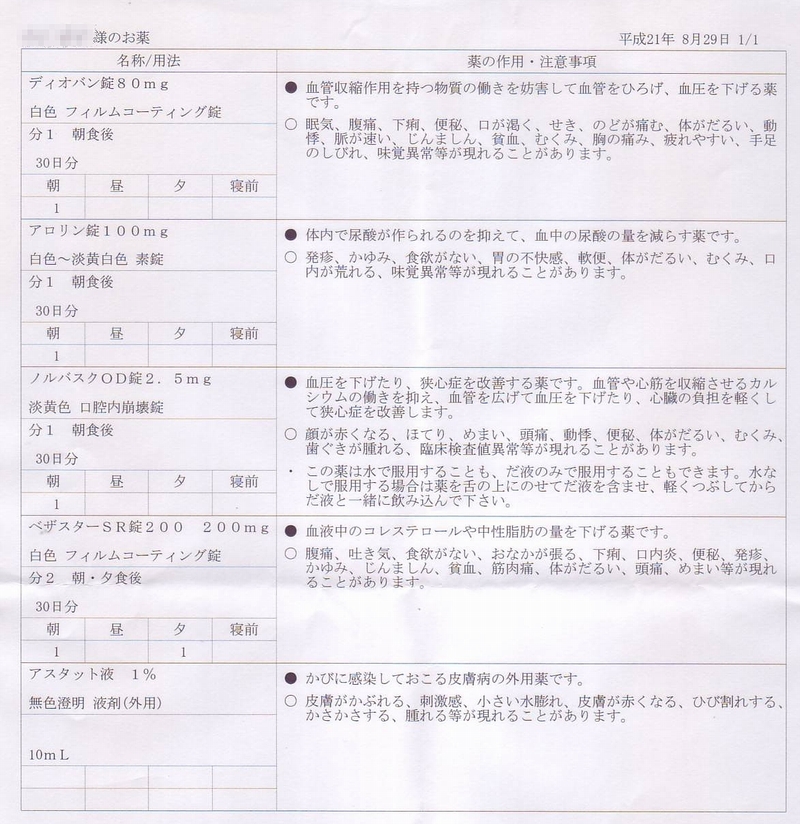 様のお薬
平成21年 8月29日 1/1
名称/用法
薬の作用・注意事項
ディオバン錠８０ｍｇ
白色 フィルムコーティング錠
分１ 朝食後
30日分
朝 昼 夕 寝前
1
● 血管収縮作用を持つ物質の働きを妨害して血管をひろげ、血圧を下げる薬
です。
○ 眠気、腹痛、下痢、便秘、口が渇く、せき、のどが痛む、体がだるい、動
悸、脈が速い、じんましん、貧血、むくみ、胸の痛み、疲れやすい、手足
のしびれ、味覚異常等が現れることがあります。
アロリン錠１００ｍｇ
白色～淡黄白色 素錠
分１ 朝食後
30日分
朝 昼 夕 寝前
1
● 体内で尿酸が作られるのを抑えて、血中の尿酸の量を減らす薬です。
○ 発疹、かゆみ、食欲がない、胃の不快感、軟便、体がだるい、むくみ、口
内が荒れる、味覚異常等が現れることがあります。
ノルバスクＯＤ錠２．５ｍｇ
淡黄色 口腔内崩壊錠
分１ 朝食後
30日分
朝 昼 夕 寝前
1
● 血圧を下げたり、狭心症を改善する薬です。血管や心筋を収縮させるカル
シウムの働きを抑え、血管を広げて血圧を下げたり、心臓の負担を軽くし
て狭心症を改善します。
○ 顔が赤くなる、ほてり、めまい、頭痛、動悸、便秘、体がだるい、むくみ、
歯ぐきが腫れる、臨床検査値異常等が現れることがあります。
・ この薬は水で服用することも、だ液のみで服用することもできます。水な
しで服用する場合は薬を舌の上にのせてだ液を含ませ、軽くつぶしてから
だ液と一緒に飲み込んで下さい。
ベザスターＳＲ錠２００ ２００ｍｇ
白色 フィルムコーティング錠
分２ 朝・夕食後
30日分
朝 昼 夕 寝前
1 1
● 血液中のコレステロールや中性脂肪の量を下げる薬です。
○ 腹痛、吐き気、食欲がない、おなかが張る、下痢、口内炎、便秘、発疹、
かゆみ、じんましん、貧血、筋肉痛、体がだるい、頭痛、めまい等が現れ
ることがあります。
アスタット液 １％
無色澄明 液剤(外用)
10ｍＬ
● かびに感染しておこる皮膚病の外用薬です。
○ 皮膚がかぶれる、刺激感、小さい水膨れ、皮膚が赤くなる、ひび割れする、
かさかさする、腫れる等が現れることがあります。